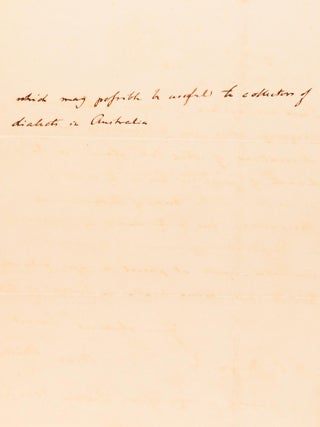 which may possible be useful to collectors of
dialects in Australia